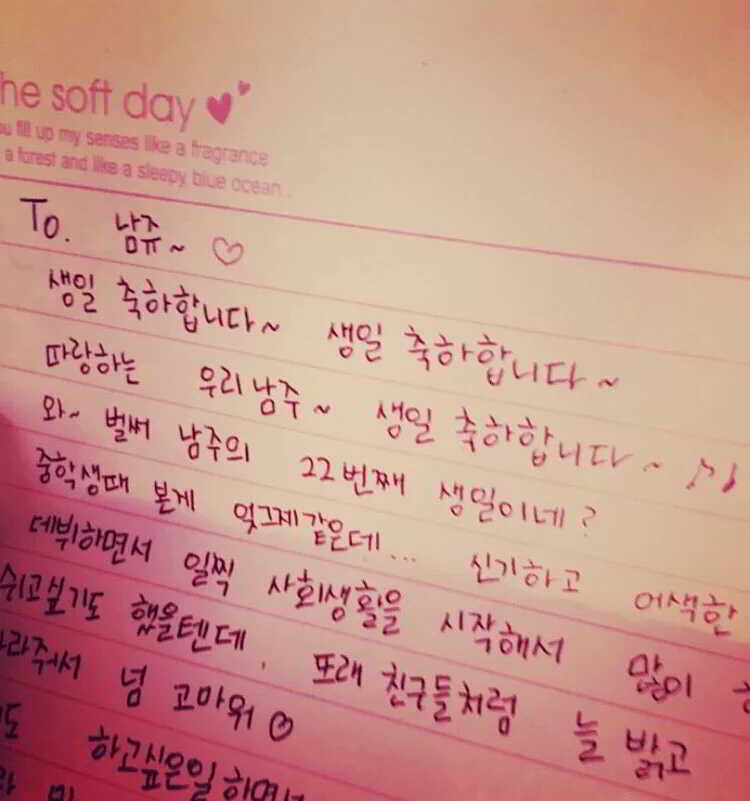 he soft day
ou fill up my senses like a fragrance
a forest and like a sleepy blue ocean..
To. 남쥬~ ♡
생일 축하합니다~ 생일 축하합니다~
따랑하는 우리남주~ 생일 축하합니다~ ♪♩
와~ 벌써 남주의 22번째 생일이네?
중학생때 본게 엊그제같은데... 신기하고 어색한
데뷔하면서 일찍 사회생활을 시작해서 많이
쉬고싶기도 했을텐데, 또래 친구들처럼 늘 밝고
라줘서 넘 고마워♡
도 하고싶은일하면서